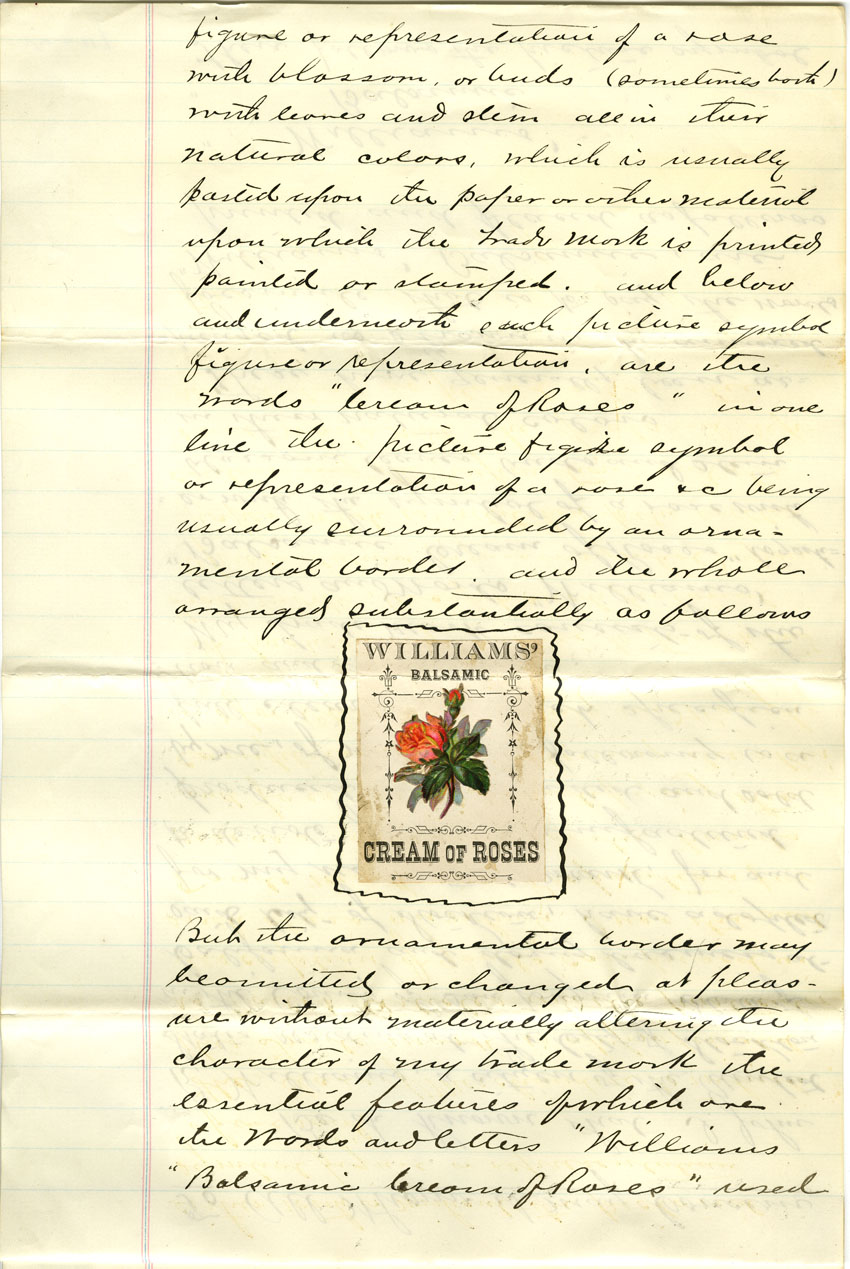 figure or representation of a rose
with blossom, or buds (sometimes both)
with leaves and stem all in their
natural colors, which is usually
pasted upon the paper or other material
upon which the trade mark is printed
painted or stamped. and below
and underneath such picture symbol
figure or representation, are the
words "Cream of Roses" in one
line the picture figure symbol
or representation of a rose &c being
usually surrounded by an orna-
mental border. and the whole
arranged substantially as follows
WILLIAMS'
BALSAMIC
CREAM OF ROSES
But the ornamental border may
be omitted or changed at pleas-
ure without materially altering the
character of my trade mark the
essential features of which are
the Words and letters "Williams
"Balsamic Cream of Roses" used